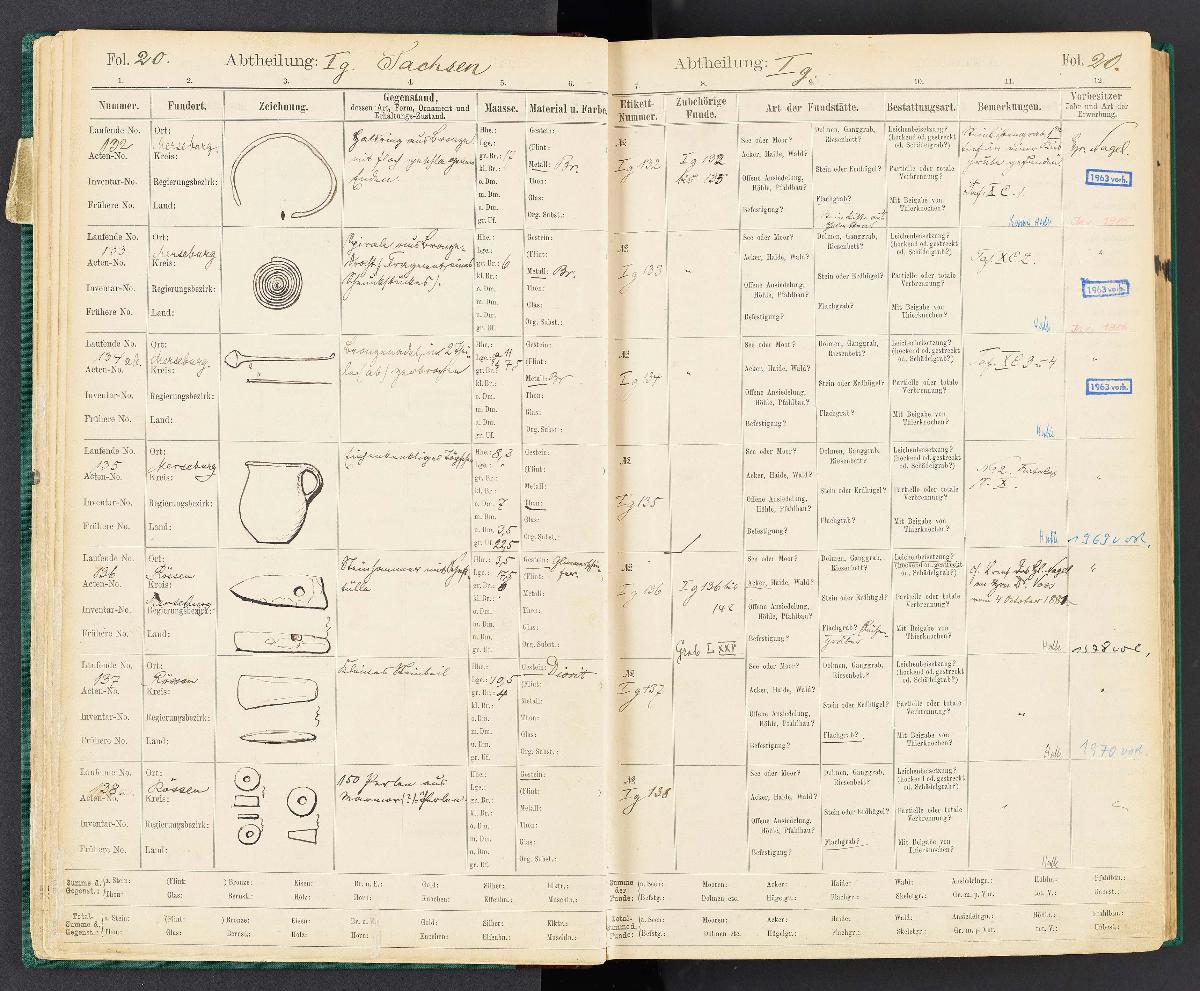 Fol. 20. Abtheilung: I g. Sachsen
1. 2. 3. 4. 5. 6.
Nummer. Fundort. Zeichnung. Gegenstand, dessen Art, Form, Ornament und Erhaltungs-Zustand. Maasse. Material u. Farbe.
Laufende No. 132
Acten-No.
Inventar-No.
Frühere No.
Ort: Merseburg
Kreis:
Regierungsbezirk:
Land:
Halsring aus Bronze
mit flach
Enden
Hhe.:
Lge.:
gr. Br.: 12
kl. Br.:
o. Dm.
m. Dm.
u. Dm.
gr. Uf.
Gestein:
(Flint:
Metall: Br.
Thon:
Glas:
Org. Subst.:
Laufende No. 133
Acten-No.
Inventar-No.
Frühere No.
Ort: Merseburg
Kreis:
Regierungsbezirk:
Land:
Spirale aus Bronze-
draht (Fragment eines
Schmuckstückes).
Hhe.:
Lge.:
gr. Br.: 6
kl. Br.:
o. Dm.
m. Dm.
u. Dm.
gr. Uf.
Gestein:
(Flint:
Metall: Br.
Thon:
Glas:
Org. Subst.:
Laufende No. 134 a.b.
Acten-No.
Inventar-No.
Frühere No.
Ort: Merseburg
Kreis:
Regierungsbezirk:
Land:
Bronzenadel, in 2 Thei-
len (a b) zerbrochen
Hhe.:
Lge.: a 11
gr. Br.: b 7,5
kl. Br.:
o. Dm.
m. Dm.
u. Dm.
gr. Uf.
Gestein:
(Flint:
Metall: Br
Thon:
Glas:
Org. Subst.:
Laufende No. 135
Acten-No.
Inventar-No.
Frühere No.
Ort: Merseburg
Kreis:
Regierungsbezirk:
Land:
Hhe.: 8,3
Lge.:
gr. Br.:
kl. Br.:
o. Dm. 7
m. Dm.
u. Dm. 3,5
gr. Uf. 22,5
Gestein:
(Flint:
Metall:
Thon:
Glas:
Org. Subst.:
Laufende No. 136
Acten-No.
Inventar-No.
Frühere No.
Ort: Rössen
Kreis: Merseburg
Regierungsbezirk:
Land:
Steinhammer mit Schaft-
tülle
Hhe.: 3,5
Lge.: 17,5
gr. Br.: 8
kl. Br.:
o. Dm.
m. Dm.
u. Dm.
gr. Uf.
Gestein: Glimmerschie-
fer.
(Flint:
Metall:
Thon:
Glas:
Org. Subst.:
Laufende No. 137
Acten-No.
Inventar-No.
Frühere No.
Ort: Rössen
Kreis:
Regierungsbezirk:
Land:
Kleines Steinbeil
Hhe.:
Lge.: 10,5
gr. Br.: 4
kl. Br.:
o. Dm.
m. Dm.
u. Dm.
gr. Uf.
Gestein: Diorit
(Flint:
Metall:
Thon:
Glas:
Org. Subst.:
Laufende No. 138
Acten-No.
Inventar-No.
Frühere No.
Ort: Rössen
Kreis:
Regierungsbezirk:
Land:
150 Perlen aus
Marmor (?)
Hhe.:
Lge.:
gr. Br.:
kl. Br.:
o. Dm.
m. Dm.
u. Dm.
gr. Uf.
Gestein:
(Flint:
Metall:
Thon:
Glas:
Org. Subst.:
Summe d. Gegenst.: a. Stein: (Flint: ) Bronze: Eisen: Br. u. E.: Gold: Silber:
Thon: Glas: Bernst.: Holz: Horn: Knochen: Elfenbn.: Muscheln.:
Total-Summe d. Gegenst.: a. Stein: (Flint: ) Bronze: Eisen: Gold: Silber:
Thon: Glas: Bernst.: Holz: Horn: Knochen: Elfenbn.: Muscheln.:
Abtheilung: I g. Fol. 20.
7. 8. 9. 10. 11. 12.
Etikett-Nummer. Zubehörige Funde. Art der Fundstätte. Bestattungsart. Bemerkungen. Vorbesitzer Jahr und Art der Erwerbung.
No.
I g 132
I g 132
bis 135
See oder Moor?
Acker, Haide, Wald?
Offene Ansiedelung,
Höhle, Pfahlbau?
Befestigung?
Dolmen, Ganggrab,
Riesenbett?
Stein oder Erdhügel?
Flachgrab?
Leichenbeisetzung?
(hockend od. gestreckt
od. Schädelgrab?)
Partielle oder totale
Verbrennung?
Mit Beigabe von
Thierknochen?
gefunden.
Gr. Nagel.
1963 vorh.
No.
I g 133
"
See oder Moor?
Acker, Haide, Wald?
Offene Ansiedelung,
Höhle, Pfahlbau?
Befestigung?
Dolmen, Ganggrab,
Riesenbett?
Stein oder Erdhügel?
Flachgrab?
Leichenbeisetzung?
(hockend od. gestreckt
od. Schädelgrab?)
Partielle oder totale
Verbrennung?
Mit Beigabe von
Thierknochen?
"
1963 vorh.
No.
I g 134
"
See oder Moor?
Acker, Haide, Wald?
Offene Ansiedelung,
Höhle, Pfahlbau?
Befestigung?
Dolmen, Ganggrab,
Riesenbett?
Stein oder Erdhügel?
Flachgrab?
Leichenbeisetzung?
(hockend od. gestreckt
od. Schädelgrab?)
Partielle oder totale
Verbrennung?
Mit Beigabe von
Thierknochen?
"
1963 vorh.
No.
I g 135
See oder Moor?
Acker, Haide, Wald?
Offene Ansiedelung,
Höhle, Pfahlbau?
Befestigung?
Dolmen, Ganggrab,
Riesenbett?
Stein oder Erdhügel?
Flachgrab?
Leichenbeisetzung?
(hockend od. gestreckt
od. Schädelgrab?)
Partielle oder totale
Verbrennung?
Mit Beigabe von
Thierknochen?
"
1969 vorh.
No.
I g 136
I g 136 bis
142
Grab LXXV
See oder Moor?
Acker, Haide, Wald?
Offene Ansiedelung,
Höhle, Pfahlbau?
Befestigung?
Dolmen, Ganggrab,
Riesenbett?
Stein oder Erdhügel?
Flachgrab?
Leichenbeisetzung?
(hockend od. gestreckt
od. Schädelgrab?)
Partielle oder totale
Verbrennung?
Mit Beigabe von
Thierknochen?
an Hrn. Dr. Voss
vom 4 October 1891
"
No.
I g 137
See oder Moor?
Acker, Haide, Wald?
Offene Ansiedelung,
Höhle, Pfahlbau?
Befestigung?
Dolmen, Ganggrab,
Riesenbett?
Stein oder Erdhügel?
Flachgrab?
Leichenbeisetzung?
(hockend od. gestreckt
od. Schädelgrab?)
Partielle oder totale
Verbrennung?
Mit Beigabe von
Thierknochen?
"
"
1970 vorh.
No.
I g 138
See oder Moor?
Acker, Haide, Wald?
Offene Ansiedelung,
Höhle, Pfahlbau?
Befestigung?
Dolmen, Ganggrab,
Riesenbett?
Stein oder Erdhügel?
Flachgrab?
Leichenbeisetzung?
(hockend od. gestreckt
od. Schädelgrab?)
Partielle oder totale
Verbrennung?
Mit Beigabe von
Thierknochen?
"
Summe der Funde: a. Seen: Mooren: Acker: Haide: Wald: Ansiedelgn.: Höhln.: Pfahlbtn.:
(Befstg.: Dolmen etc. Hügelgr.: Flachgr.: Skeletgr.: Gr. m. p. Ver. tot. V.: Unbest.:
Total-Summe d. Funde: a. Seen: Mooren: Acker: Haide: Wald: Ansiedelgn.: Höhln.: Pfahlbtn.:
(Befstg.: Dolmen etc. Hügelgr.: Flachgr.: Skeletgr.: Gr. m. p. Ver. tot. V.: Unbest.: